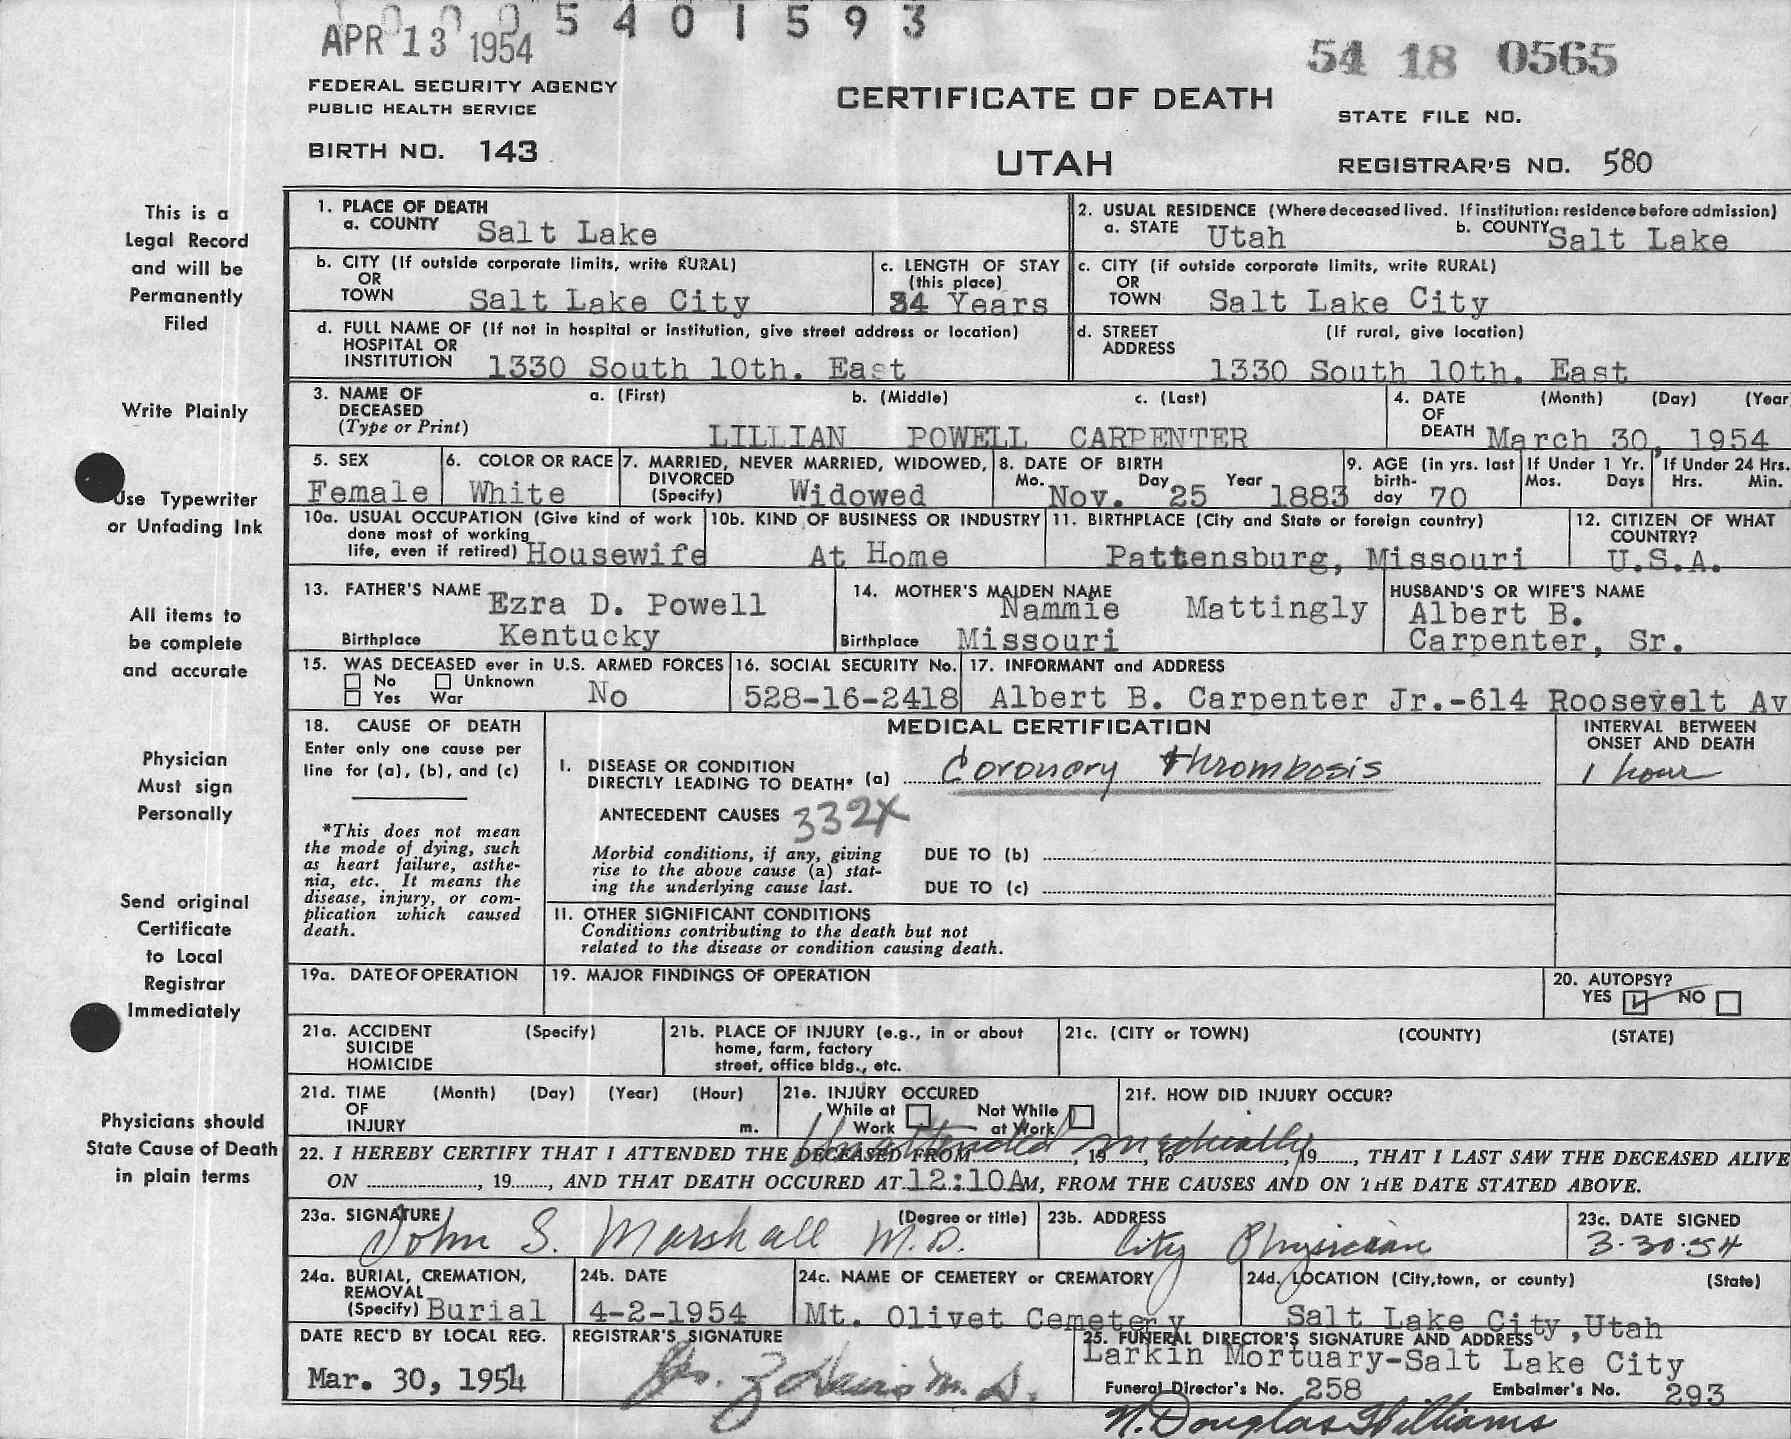 0 0 0 5 4 0 1 5 9 3
APR 13 1954
54 18 0565
FEDERAL SECURITY AGENCY
PUBLIC HEALTH SERVICE
CERTIFICATE OF DEATH
STATE FILE NO.
BIRTH NO. 143
UTAH
REGISTRAR'S NO. 580
This is a
Legal Record
and will be
Permanently
Filed
Write Plainly
Use Typewriter
or Unfading Ink
All items to
be complete
and accurate
Physician
Must sign
Personally
Send original
Certificate
to Local
Registrar
Immediately
Physicians should
State Cause of Death
in plain terms
1. PLACE OF DEATH
a. COUNTY Salt Lake
2. USUAL RESIDENCE (Where deceased lived. If institution: residence before admission)
a. STATE Utah b. COUNTY Salt Lake
b. CITY (If outside corporate limits, write RURAL)
OR
TOWN Salt Lake City
c. LENGTH OF STAY
(this place)
34 Years
c. CITY (if outside corporate limits, write RURAL)
OR
TOWN Salt Lake City
d. FULL NAME OF (If not in hospital or institution, give street address or location)
HOSPITAL OR
INSTITUTION 1330 South 10th. East
d. STREET (If rural, give location)
ADDRESS
1330 South 10th. East
3. NAME OF a. (First) b. (Middle) c. (Last)
DECEASED
(Type or Print) LILLIAN POWELL CARPENTER
4. DATE (Month) (Day) (Year
OF
DEATH March 30, 1954
5. SEX
Female
6. COLOR OR RACE
White
7. MARRIED, NEVER MARRIED, WIDOWED,
DIVORCED
(Specify) Widowed
8. DATE OF BIRTH
Mo. Nov. Day 25 Year 1883
9. AGE (in yrs. last
birth-
day 70
If Under 1 Yr.
Mos. Days
If Under 24 Hrs.
Hrs. Min.
10a. USUAL OCCUPATION (Give kind of work
done most of working
life, even if retired) Housewife
10b. KIND OF BUSINESS OR INDUSTRY
At Home
11. BIRTHPLACE (City and State or foreign country)
Pattensburg, Missouri
12. CITIZEN OF WHAT
COUNTRY?
U.S.A.
13. FATHER'S NAME Ezra D. Powell
Birthplace Kentucky
14. MOTHER'S MAIDEN NAME
Nammie Mattingly
Birthplace Missouri
HUSBAND'S OR WIFE'S NAME
Albert B.
Carpenter, Sr.
15. WAS DECEASED ever in U.S. ARMED FORCES
No Unknown
Yes War No
16. SOCIAL SECURITY No.
528-16-2418
17. INFORMANT and ADDRESS
Albert B. Carpenter Jr.-614 Roosevelt Av
18. CAUSE OF DEATH
Enter only one cause per
line for (a), (b), and (c)
*This does not mean
the mode of dying, such
as heart failure, asthe-
nia, etc. It means the
disease, injury, or com-
plication which caused
death.
MEDICAL CERTIFICATION
I. DISEASE OR CONDITION
DIRECTLY LEADING TO DEATH* (a) Coronary thrombosis
INTERVAL BETWEEN
ONSET AND DEATH
1 hour
ANTECEDENT CAUSES 332X
Morbid conditions, if any, giving
rise to the above cause (a) stat-
ing the underlying cause last.
DUE TO (b)
DUE TO (c)
II. OTHER SIGNIFICANT CONDITIONS
Conditions contributing to the death but not
related to the disease or condition causing death.
19a. DATE OF OPERATION
19. MAJOR FINDINGS OF OPERATION
20. AUTOPSY?
YES NO
21a. ACCIDENT (Specify)
SUICIDE
HOMICIDE
21b. PLACE OF INJURY (e.g., in or about
home, farm, factory
street, office bldg., etc.
21c. (CITY or TOWN) (COUNTY) (STATE)
21d. TIME (Month) (Day) (Year) (Hour)
OF
INJURY m.
21e. INJURY OCCURED
While at Not While
Work at Work
21f. HOW DID INJURY OCCUR?
Unattended medically
22. I HEREBY CERTIFY THAT I ATTENDED THE DECEASED FROM , 19 , to , 19 , THAT I LAST SAW THE DECEASED ALIVE
ON , 19 , AND THAT DEATH OCCURED AT 12:10A M, FROM THE CAUSES AND ON THE DATE STATED ABOVE.
23a. SIGNATURE (Degree or title)
John S. Marshall M.D.
23b. ADDRESS
City Physician
23c. DATE SIGNED
3-30-54
24a. BURIAL, CREMATION,
REMOVAL
(Specify) Burial
24b. DATE
4-2-1954
24c. NAME OF CEMETERY or CREMATORY
Mt. Olivet Cemetery
24d. LOCATION (City, town, or county) (State)
Salt Lake City, Utah
DATE REC'D BY LOCAL REG.
Mar. 30, 1954
REGISTRAR'S SIGNATURE
M. D.
25. FUNERAL DIRECTOR'S SIGNATURE AND ADDRESS
Larkin Mortuary-Salt Lake City
Funeral Director's No. 258 Embalmer's No. 293
N. Douglas Williams